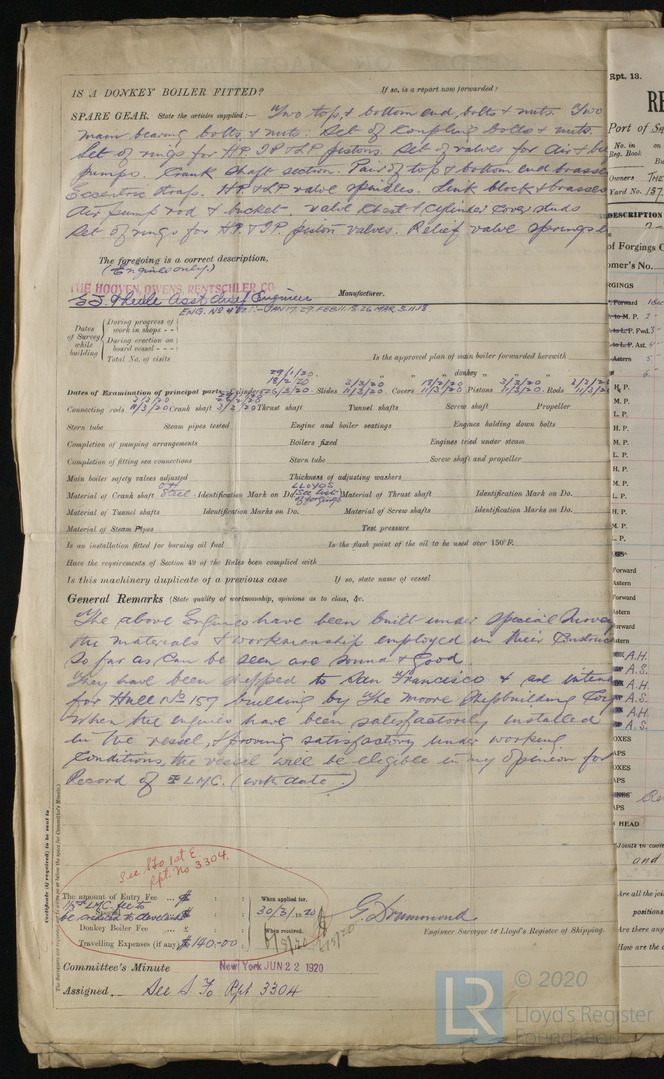 IS A DONKEY BOILER FITTED? If so, is a report now forwarded?
SPARE GEAR. State the articles supplied:— Two top & bottom end bolts & nuts. Two
main bearing bolts & nuts. Set of coupling bolts & nuts.
Set of rings for HP IP & LP pistons. Set of valves for Air &
pumps. Crank shaft section. Pair of top & bottom end brasses
Eccentric strap. HP & LP valve spindles. Link block & brasses
Air pump rod & bucket. Valve Chest & Cylinder Cover studs
Set of rings for HP. & I.P. piston valves. Relief valve springs
The foregoing is a correct description,
(Engines only.)
THE HOOVEN, OWENS, RENTSCHLER CO
Asst Chief Engineer Manufacturer.
Dates of Survey while building
During progress of work in shops - -
During erection on board vessel - - -
Total No. of visits
Is the approved plan of main boiler forwarded herewith
" " " donkey " " "
29/1/20
18/2/20
Dates of Examination of principal parts—Cylinders 26/2/20 Slides 11/3/20 Covers 11/3/20 Pistons 11/3/20 Rods 11/3/20
Connecting rods 11/3/20 Crank shaft 3/2/20 Thrust shaft Tunnel shafts Screw shaft Propeller
Stern tube Steam pipes tested Engine and boiler seatings Engines holding down bolts
Completion of pumping arrangements Boilers fixed Engines tried under steam
Completion of fitting sea connections Stern tube Screw shaft and propeller
Main boiler safety valves adjusted Thickness of adjusting washers
Material of Crank shaft Steel Identification Mark on Do. LLOYDS (See List of forgings) Material of Thrust shaft Identification Mark on Do.
Material of Tunnel shafts Identification Marks on Do. Material of Screw shafts Identification Marks on Do.
Material of Steam Pipes Test pressure
Is an installation fitted for burning oil fuel Is the flash point of the oil to be used over 150°F.
Have the requirements of Section 49 of the Rules been complied with
Is this machinery duplicate of a previous case If so, state name of vessel
General Remarks (State quality of workmanship, opinions as to class, &c.
The above Engines have been built under Special Survey
the materials & workmanship employed in their Construc
so far as can be seen are sound & good.
They have been shipped to San Francisco & are inten
for Hull No 157 building by The Moore Shipbuilding
When the engines have been satisfactorily installed
in the vessel, & proving satisfactory under working
conditions, the vessel will be eligible in my opinion for
Record of LMC. (with date.)
See Sfo 1st E
Rpt. No 3304.
The amount of Entry Fee ... $ : :
1/3rd LMC. fee to
be credited to Cleveland $ : :
Donkey Boiler Fee ... $ : :
Travelling Expenses (if any) $140.00 :
When applied for,
30/3/1920
When received,
6/8/20
G. Drummond
Engineer Surveyor to Lloyd's Register of Shipping.
Committee's Minute New York JUN 22 1920
Assigned See S. Fo Rpt 3304
Certificate (if required) to be sent to
Rpt. 13.
Port of
No. in
Reg. Book
Owners THE
Yard No. 157
DESCRIPTION
of Forgings
RGINGS
H. P.
M. P.
L. P.
H. P.
M. P.
L. P.
H. P.
M. P.
L. P.
H. P.
M. P.
L. P.
Forward
Astern
Forward
Astern
A.H.
A.S.
A.H.
A.S.
A.H.
A.S.
OXES
APS
OXES
APS
APS
HEAD
and
Are all the joi
positions
Are there any
How are the
© 2020
LR
Lloyd's Register
Foundation